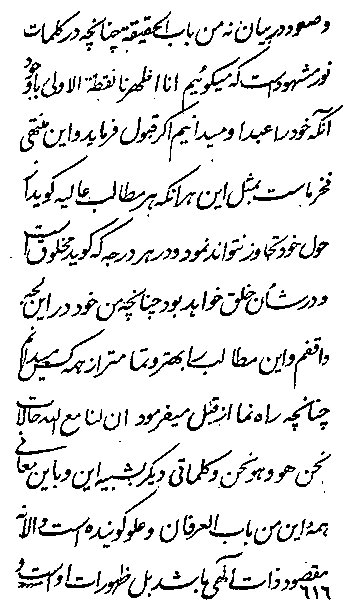 وصعود در بیان نه من باب الحقیقة چنانچه در کلمات
نور مشهود است که میگوئیم انا اظهرنا نقطة الاولی با وجود
آنکه خود را عبد او میدانیم اگر قبول فرماید و این منتهی
فخر ماست بمثل این هر آنکه هر مطالب عالیه گوید از
حول خود تجاوز نتواند نمود و در هر درجه که گوید مخلوق است
و در شأن خلق خواهد بود چنانچه من خود در این لجه
واقفم و این مطالب را بهتر و تمامتر از همه کس میدانم
چنانچه راه نما از قبل میفرمود ان لنا مع الله حالات
نحن هو و هو نحن و کلماتی دیگر شبیه این و باین معانی
همه این من باب العرفان و علو گوینده است و الا نه
مقصود ذات الهی باشد بل ظهورات او است و
۶۱۶